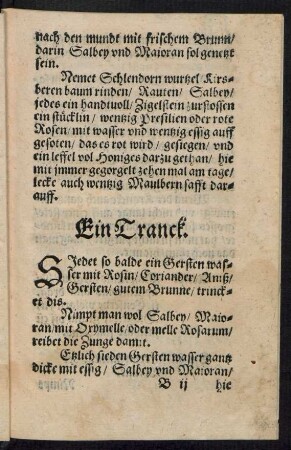 nach den mundt mit frischem Brunn/
darin Salbey vnd Maioran sol genetzt
sein.
Nemet Schlendorn wurtzel Kirs⸗
beren baum rinden/ Rauten/ Salbey/
jedes ein handtvoll/ Zigelstein zurstossen
ein stücklin/ wentzig Presilien oder rote
Rosen/ mit wasser vnd wentzig essig auff
gesoten/ das es rot wird/ gesiegen/ vnd
ein leffel vol Honiges darzu gethan/ hie
mit jmmer gegorgelt zehen mal am tage/
lecke auch wentzig Maulbern safft dar⸗
auff.
Ein Tranck.
SIedet so balde ein Gersten was⸗
ser mit Rosin/ Coriander/ Aniß/
Gersten/ gutem Brunne/ trinck⸗
et dis.
Nimpt man wol Salbey/ Maio⸗
ran/ mit Oxymelle/ oder melle Rosarum/
reibet die Zunge damit.
Etzlich sieden Gersten wasser gantz
dicke mit essig/ Salbey vnd Maioran/
B ij hie